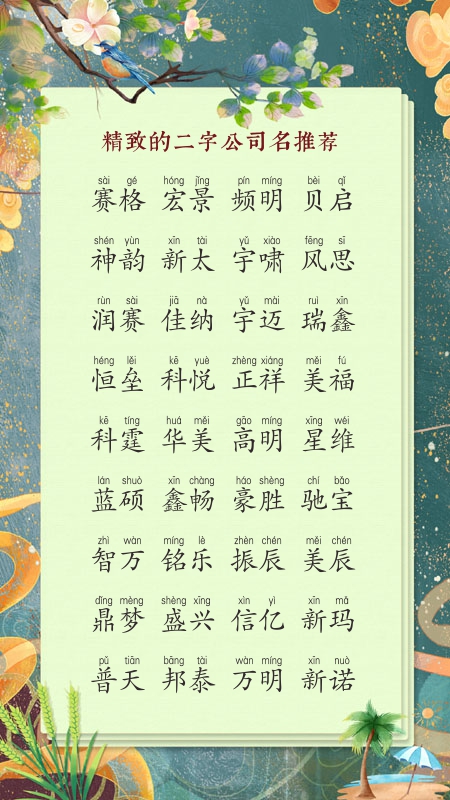 精致的二字公司名推荐
sài gé hóng jǐng pín míng bèi qǐ
赛格 宏景 频明 贝启
shén yùn xīn tài yǔ xiào fēng sī
神韵 新太 宇啸 风思
rùn sài jiā nà yǔ mài ruì xīn
润赛 佳纳 宇迈 瑞鑫
héng lěi kē yuè zhèng xiáng měi fú
恒垒 科悦 正祥 美福
kē tíng huá měi gāo míng xīng wéi
科霆 华美 高明 星维
lán shuò xīn chàng háo shèng chí bǎo
蓝硕 鑫畅 豪胜 驰宝
zhì wàn míng lè zhèn chén měi chén
智万 铭乐 振辰 美辰
dǐng mèng shèng xīng xìn yì xīn mǎ
鼎梦 盛兴 信亿 新玛
pǔ tiān bāng tài wàn míng xīn nuò
普天 邦泰 万明 新诺